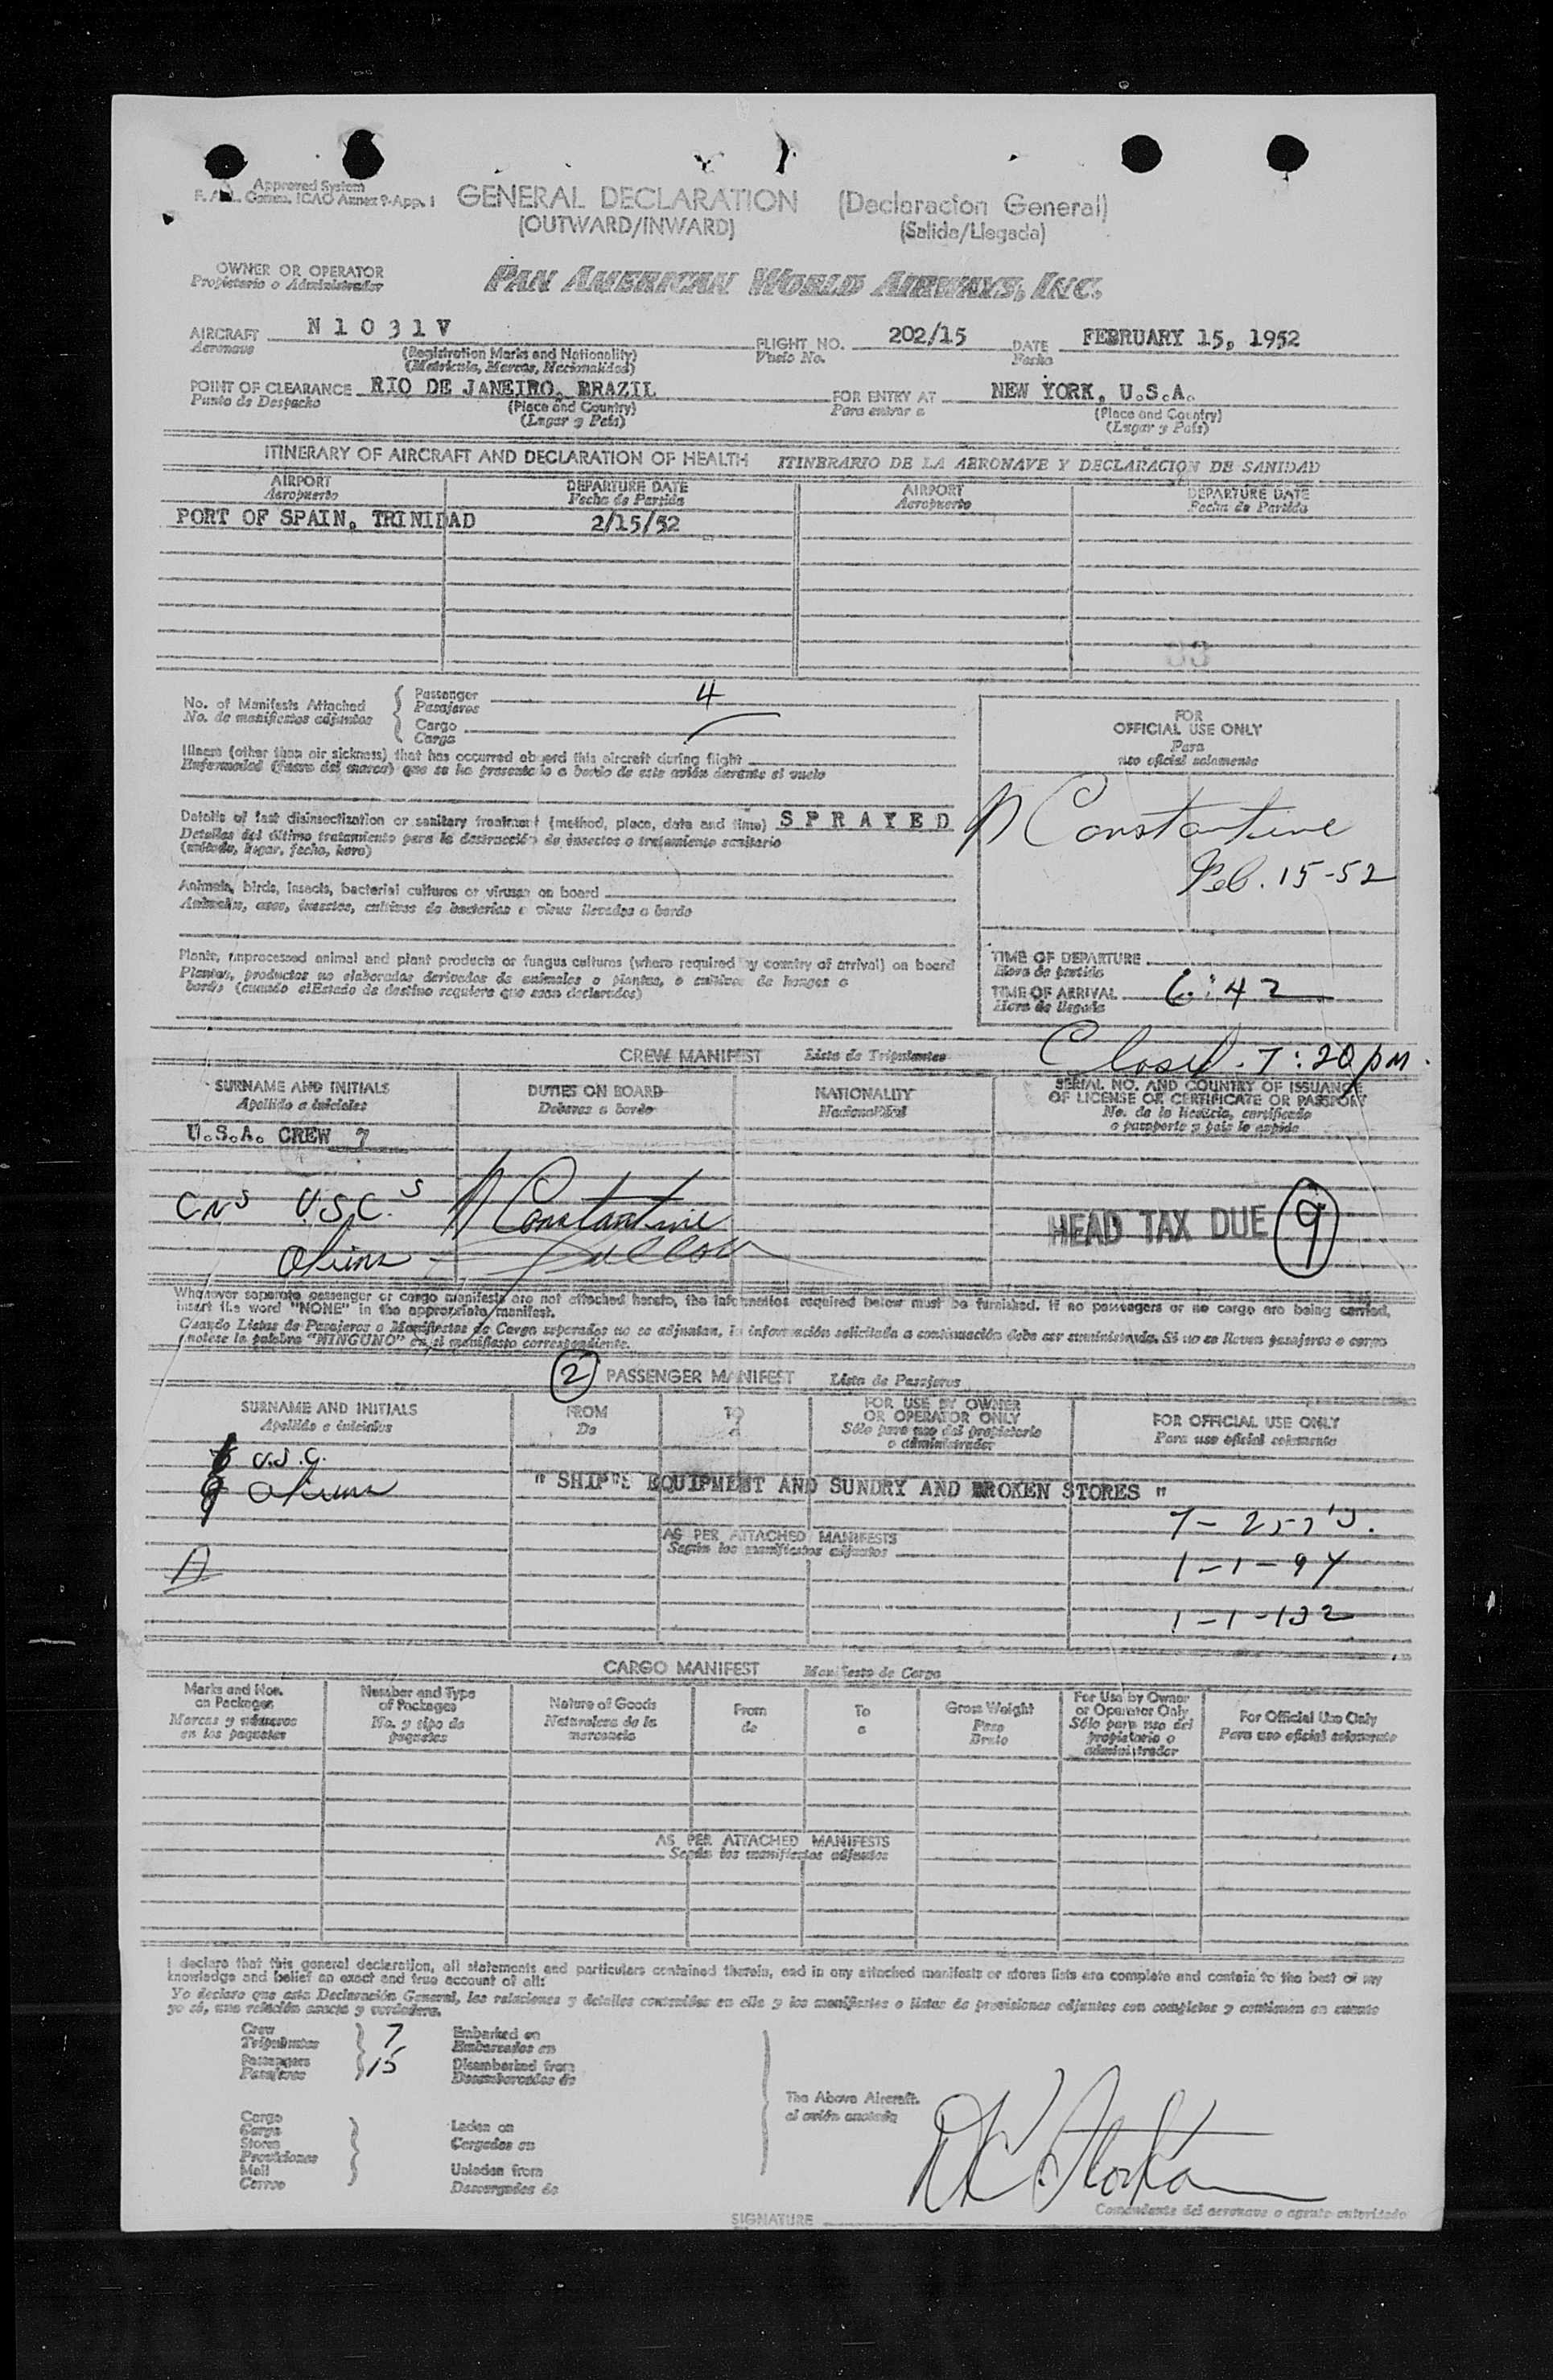 Approved System
F.A.L. Comm. ICAO Annex 9-App. 1
GENERAL DECLARATION (Declaracion General)
(OUTWARD/INWARD) (Salida/Llegada)
OWNER OR OPERATOR
Propietario o Administrador
PAN AMERICAN WORLD AIRWAYS, INC.
AIRCRAFT N1031V FLIGHT NO. 202/15 DATE FEBRUARY 15, 1952
Aeronave (Registration Marks and Nationality) Vuelo No. Fecha
(Matricula, Marcas, Nacionalidad)
POINT OF CLEARANCE RIO DE JANEIRO, BRAZIL FOR ENTRY AT NEW YORK, U.S.A.
Punto de Despacho (Place and Country) Para entrar a (Place and Country)
(Lugar y País) (Lugar y País)
ITINERARY OF AIRCRAFT AND DECLARATION OF HEALTH ITINERARIO DE LA AERONAVE Y DECLARACION DE SANIDAD
AIRPORT DEPARTURE DATE AIRPORT DEPARTURE DATE
Aeropuerto Fecha de Partida Aeropuerto Fecha de Partida
PORT OF SPAIN, TRINIDAD 2/15/52
No. of Manifests Attached
No. de manifiestos adjuntos
Passenger 4
Pasajeros
Cargo
Carga
FOR
OFFICIAL USE ONLY
Para
uso oficial solamente
Illness (other than air sickness) that has occurred aboard this aircraft during flight
Enfermedad (fuera del mareo) que se ha presentado a bordo de este avión durante el vuelo
Details of last disinsectization or sanitary treatment (method, place, date and time) SPRAYED
Detalles del último tratamiento para la destrucción de insectos o tratamiento sanitario
(método, lugar, fecha, hora)
N Constantine
Feb. 15-52
Animals, birds, insects, bacterial cultures or viruses on board
Animales, aves, insectos, cultivos de bacterias o virus llevados a bordo
Plants, unprocessed animal and plant products or fungus cultures (where required by country of arrival) on board
Plantas, productos no elaborados derivados de animales o plantas, o cultivos de hongos a
bordo (cuando el Estado de destino requiera que sean declarados)
TIME OF DEPARTURE
Hora de partida
TIME OF ARRIVAL 6:42
Hora de llegada
Closed. 7:20 pm.
CREW MANIFEST Lista de Tripulantes
SURNAME AND INITIALS DUTIES ON BOARD NATIONALITY SERIAL NO. AND COUNTRY OF ISSUANCE
OF LICENSE OR CERTIFICATE OR PASSPORT
Apellido e iniciales Deberes a bordo Nacionalidad No. de la licencia, certificado
o pasaporte y país lo expide
U.S.A. CREW 7
U.S.C.s N Constantine
HEAD TAX DUE 9
Whenever separate passenger or cargo manifests are not attached hereto, the information required below must be furnished. If no passengers or no cargo are being carried,
insert the word "NONE" in the appropriate manifest.
Cuando Listas de Pasajeros o Manifiestos de Carga separados no se adjuntan, la información solicitada a continuación debe ser suministrada. Si no se llevan pasajeros o cargo
anótese la palabra "NINGUNO" en el manifiesto correspondiente.
2 PASSENGER MANIFEST Lista de Pasajeros
SURNAME AND INITIALS FROM TO FOR USE BY OWNER
OR OPERATOR ONLY FOR OFFICIAL USE ONLY
Apellido e iniciales De a Sólo para uso del propietario
o administrador Para uso oficial solamente
" SHIP"S EQUIPMENT AND SUNDRY AND BROKEN STORES "
AS PER ATTACHED MANIFESTS
Según los manifiestos adjuntos
1-1-94
1-1-132
CARGO MANIFEST Manifiesto de Carga
Marks and Nos.
on Packages
Marcas y números
en los paquetes
Number and Type
of Packages
No. y tipo de
paquetes
Nature of Goods
Naturaleza de la
mercancía
From
de
To
a
Gross Weight
Peso
Bruto
For Use by Owner
or Operator Only
Sólo para uso del
propietario o
administrador
For Official Use Only
Para uso oficial solamente
AS PER ATTACHED MANIFESTS
Según los manifiestos adjuntos
I declare that this general declaration, all statements and particulars contained therein, and in any attached manifests or stores lists are complete and contain to the best of my
knowledge and belief an exact and true account of all:
Yo declaro que esta Declaración General, las relaciones y detalles contenidos en ella y los manifiestos o listas de provisiones adjuntos son completos y contienen en cuanto
yo sé, una relación exacta y verdadera.
Crew 7 Embarked on
Tripulantes Embarcados en
Passengers 15 Disembarked from
Pasajeros Desembarcados de
The Above Aircraft.
el avión anotado
Cargo
Carga
Stores
Provisiones
Mail
Correo
Laden on
Cargados en
Unladen from
Descargados de
SIGNATURE
Comandante del aeronave o agente autorizado